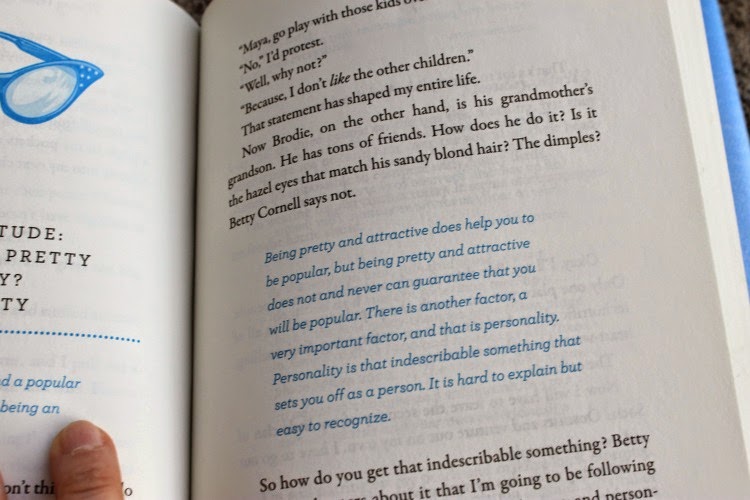 TUDE:
PRETTY
Y?
TY
d a popular
being an
on't thi
o
"Maya, go play with those kids ov
"No," I'd protest.
"Well, why not?"
"Because, I don't like the other children."
That statement has shaped my entire life.
Now Brodie, on the other hand, is his grandmother's
grandson. He has tons of friends. How does he do it? Is it
the hazel eyes that match his sandy blond hair? The dimples?
Betty Cornell says not.
Being pretty and attractive does help you to
be popular, but being pretty and attractive
does not and never can guarantee that you
will be popular. There is another factor, a
very important factor, and that is personality.
Personality is that indescribable something that
sets you off as a person. It is hard to explain but
easy to recognize.
So how do you get that indescribable something? Betty
about it that I'm going to be following
and person-